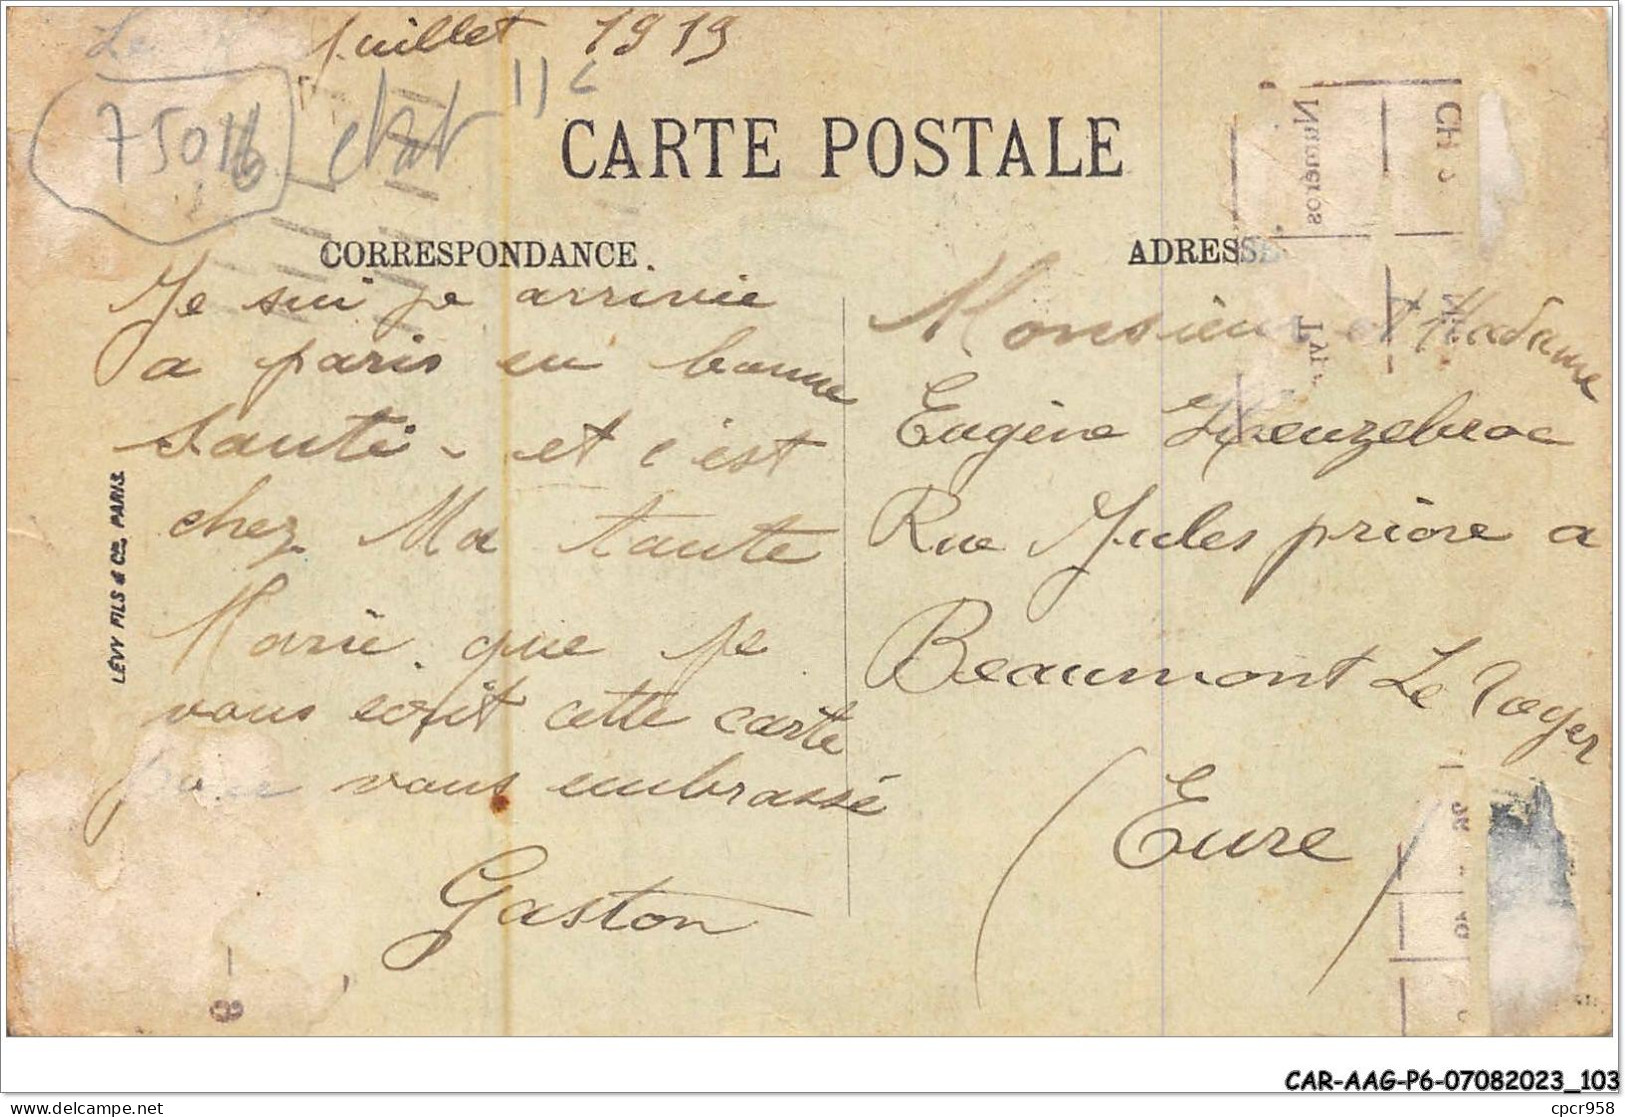 Le juillet 1919
75016
etat
CARTE POSTALE
CORRESPONDANCE
Je sui je arrivie
a paris en bonne
Santé - et c'est
chez Ma tante
Marie. que je
vous ecrit cette carte
pour vous embrassé
Gaston
LÉVY FILS & Cie, PARIS
ADRESSE
Monsieur et Madame
Eugène
Rue Jules priore a
Beaumont Le Roger
(Eure)
Numéros
CAR-AAG-P6-07082023_103
delcampe.net
cpcr958